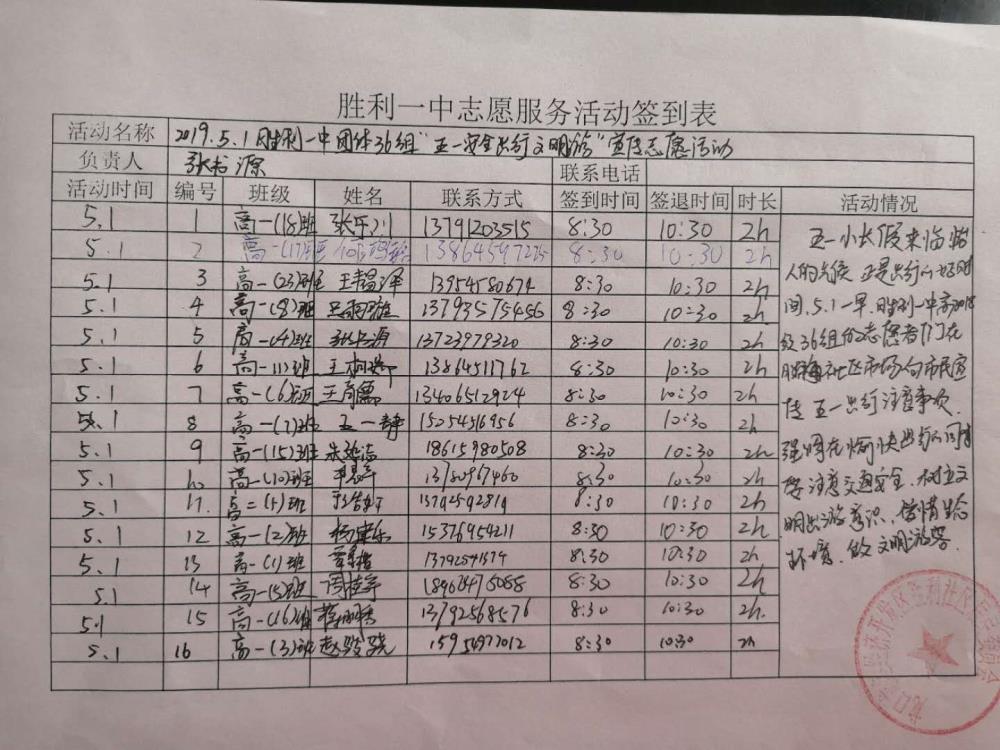 胜利一中志愿服务活动签到表
活动名称 2019.5.1胜利一中团体36组"五一安全出行文明游"宣传志愿活动
负责人 张书源 联系电话
活动时间 编号 班级 姓名 联系方式 签到时间 签退时间 时长 活动情况
5.1 1 高一(18)班 张乐川 13791203515 8:30 10:30 2h
5.1 2 高一(17)班 13864597225 8:30 10:30 2h
5.1 3 高一(23)班 13954580674 8:30 10:30 2h
5.1 4 高一(8)班 13793575456 8:30 10:30 2h
5.1 5 高一(4)班 张书源 13723979320 8:30 10:30 2h
5.1 6 高一(1)班 13864511762 8:30 10:30 2h
5.1 7 高一(6)班 王奇儒 13406512924 8:30 10:30 2h
5.1 8 高一(7)班 王一静 15254516956 8:30 10:30 2h
5.1 9 高一(15)班 18615980508 8:30 10:30 2h
5.1 10 高一(10)班 8:30 10:30 2h
5.1 11 高二(5)班 13792592819 8:30 10:30 2h
5.1 12 高一(2)班 15376954211 8:30 10:30 2h
5.1 13 高一(1)班 8:30 10:30 2h
5.1 14 高一(5)班 周桂宇 8:30 10:30 2h
5.1 15 高一(16)班 13792568576 8:30 10:30 2h
5.1 16 高一(3)班 赵骏骁 15954977012 8:30 10:30 2h
五一小长假来临
人的 正是出行的好时
间,5.1一早,胜利一中高2018
级36组的志愿者们在
社区市场向市民宣
传五一出行注意事项
强调在愉快出行的同时
要注意交通安全,树立文
明出游意识,
环境,做文明游客.